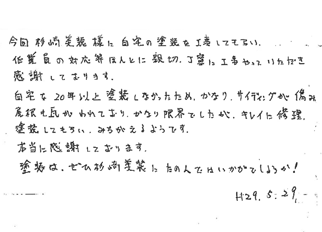 今回杉崎美装様に自宅の塗装を工事してもらい、
従業員の対応等ほんとに親切、丁寧に工事やっていただき
感謝しております。
自宅を20年以上塗装しなかったため、かなり、サイディングが傷み
屋根も瓦がわれており、かなり限界でしたが、キレイに修理、
塗装してもらい、みちがえるようです。
本当に感謝しております。
塗装は、ぜひ杉崎美装にたのんではいかがでしょうか!
H29.5.29